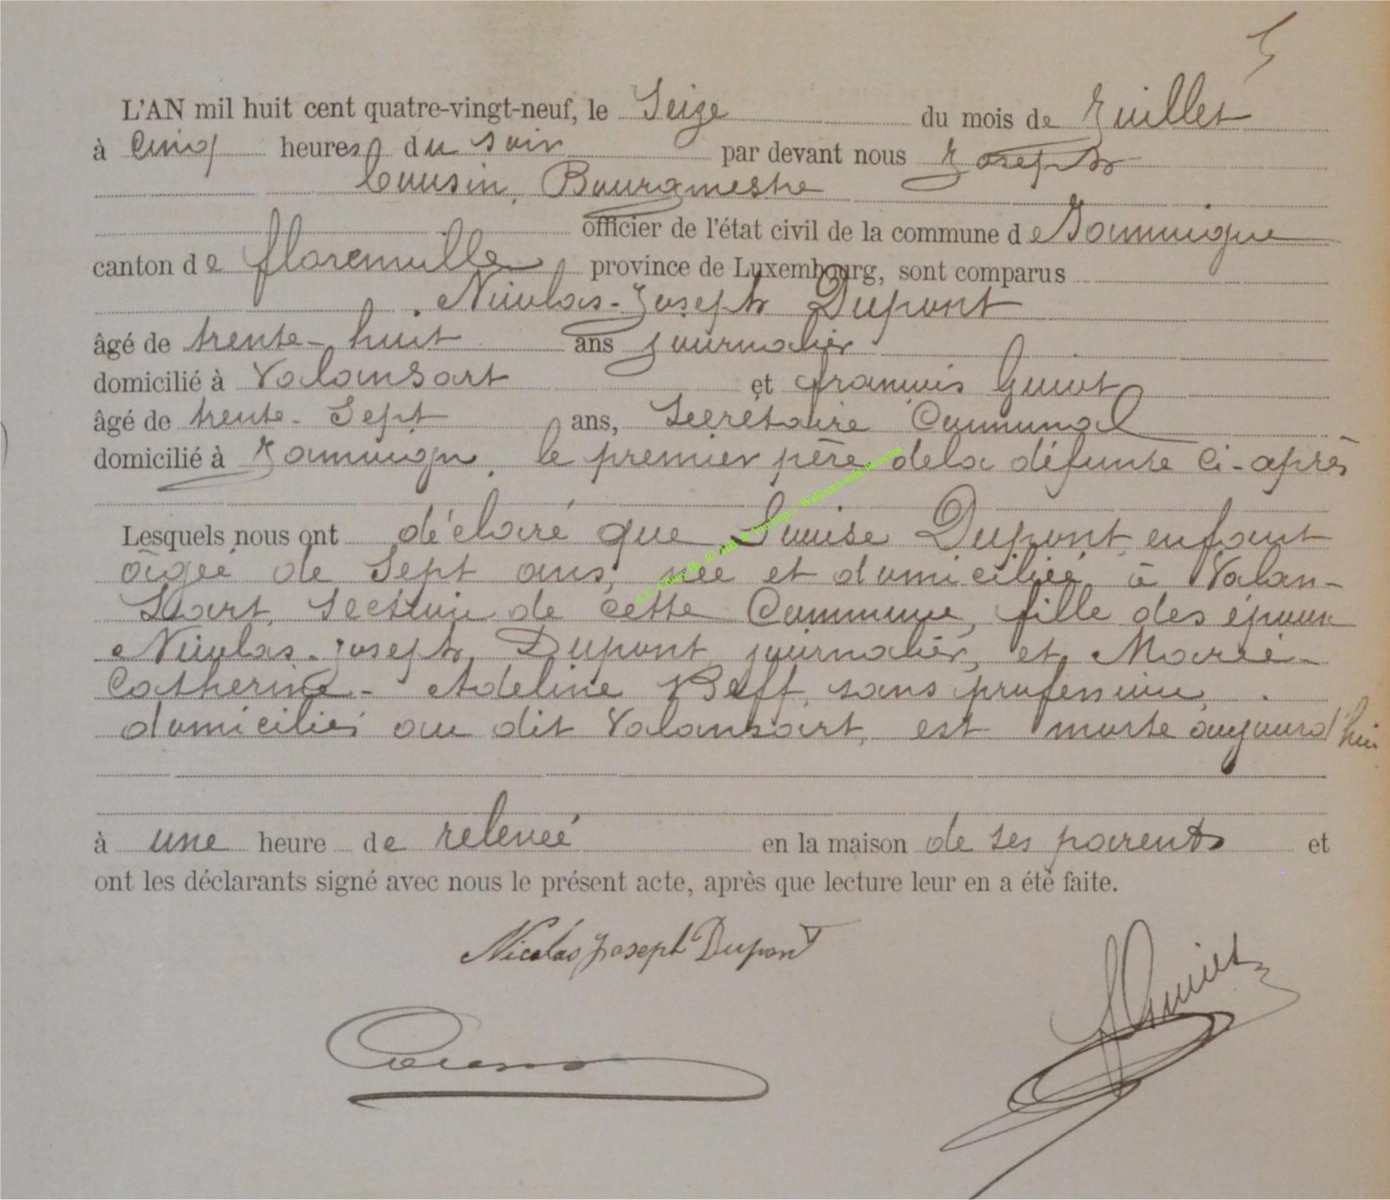 5
L'AN mil huit cent quatre-vingt-neuf, le Seize du mois de Juillet
à Cinq heures du soir par devant nous Joseph
Cousin, Bourgmestre
officier de l'état civil de la commune de Jamoigne
canton de florenville province de Luxembourg, sont comparus
Nicolas-Joseph Dupont
âgé de trente-huit ans journalier
domicilié à Valansart et françois Guiot
âgé de trente-Sept ans, Secrétaire Communal
domicilié à Jamoigne, le premier père dela défunte Ci-après
Lesquels nous ont déclaré que Louise Dupont, enfant
âgée de Sept ans, née et domiciliée à Valan-
Sart, Section de cette Commune, fille des époux
Nicolas-joseph Dupont journalier, et Marie-
Catherine-Adeline sans profession,
domiciliés au dit Valansart, est morte aujourd'hui
à une heure de relevée en la maison de ses parents et
ont les déclarants signé avec nous le présent acte, après que lecture leur en a été faite.
Nicolas Joseph Dupont
JGuiot
Cousin